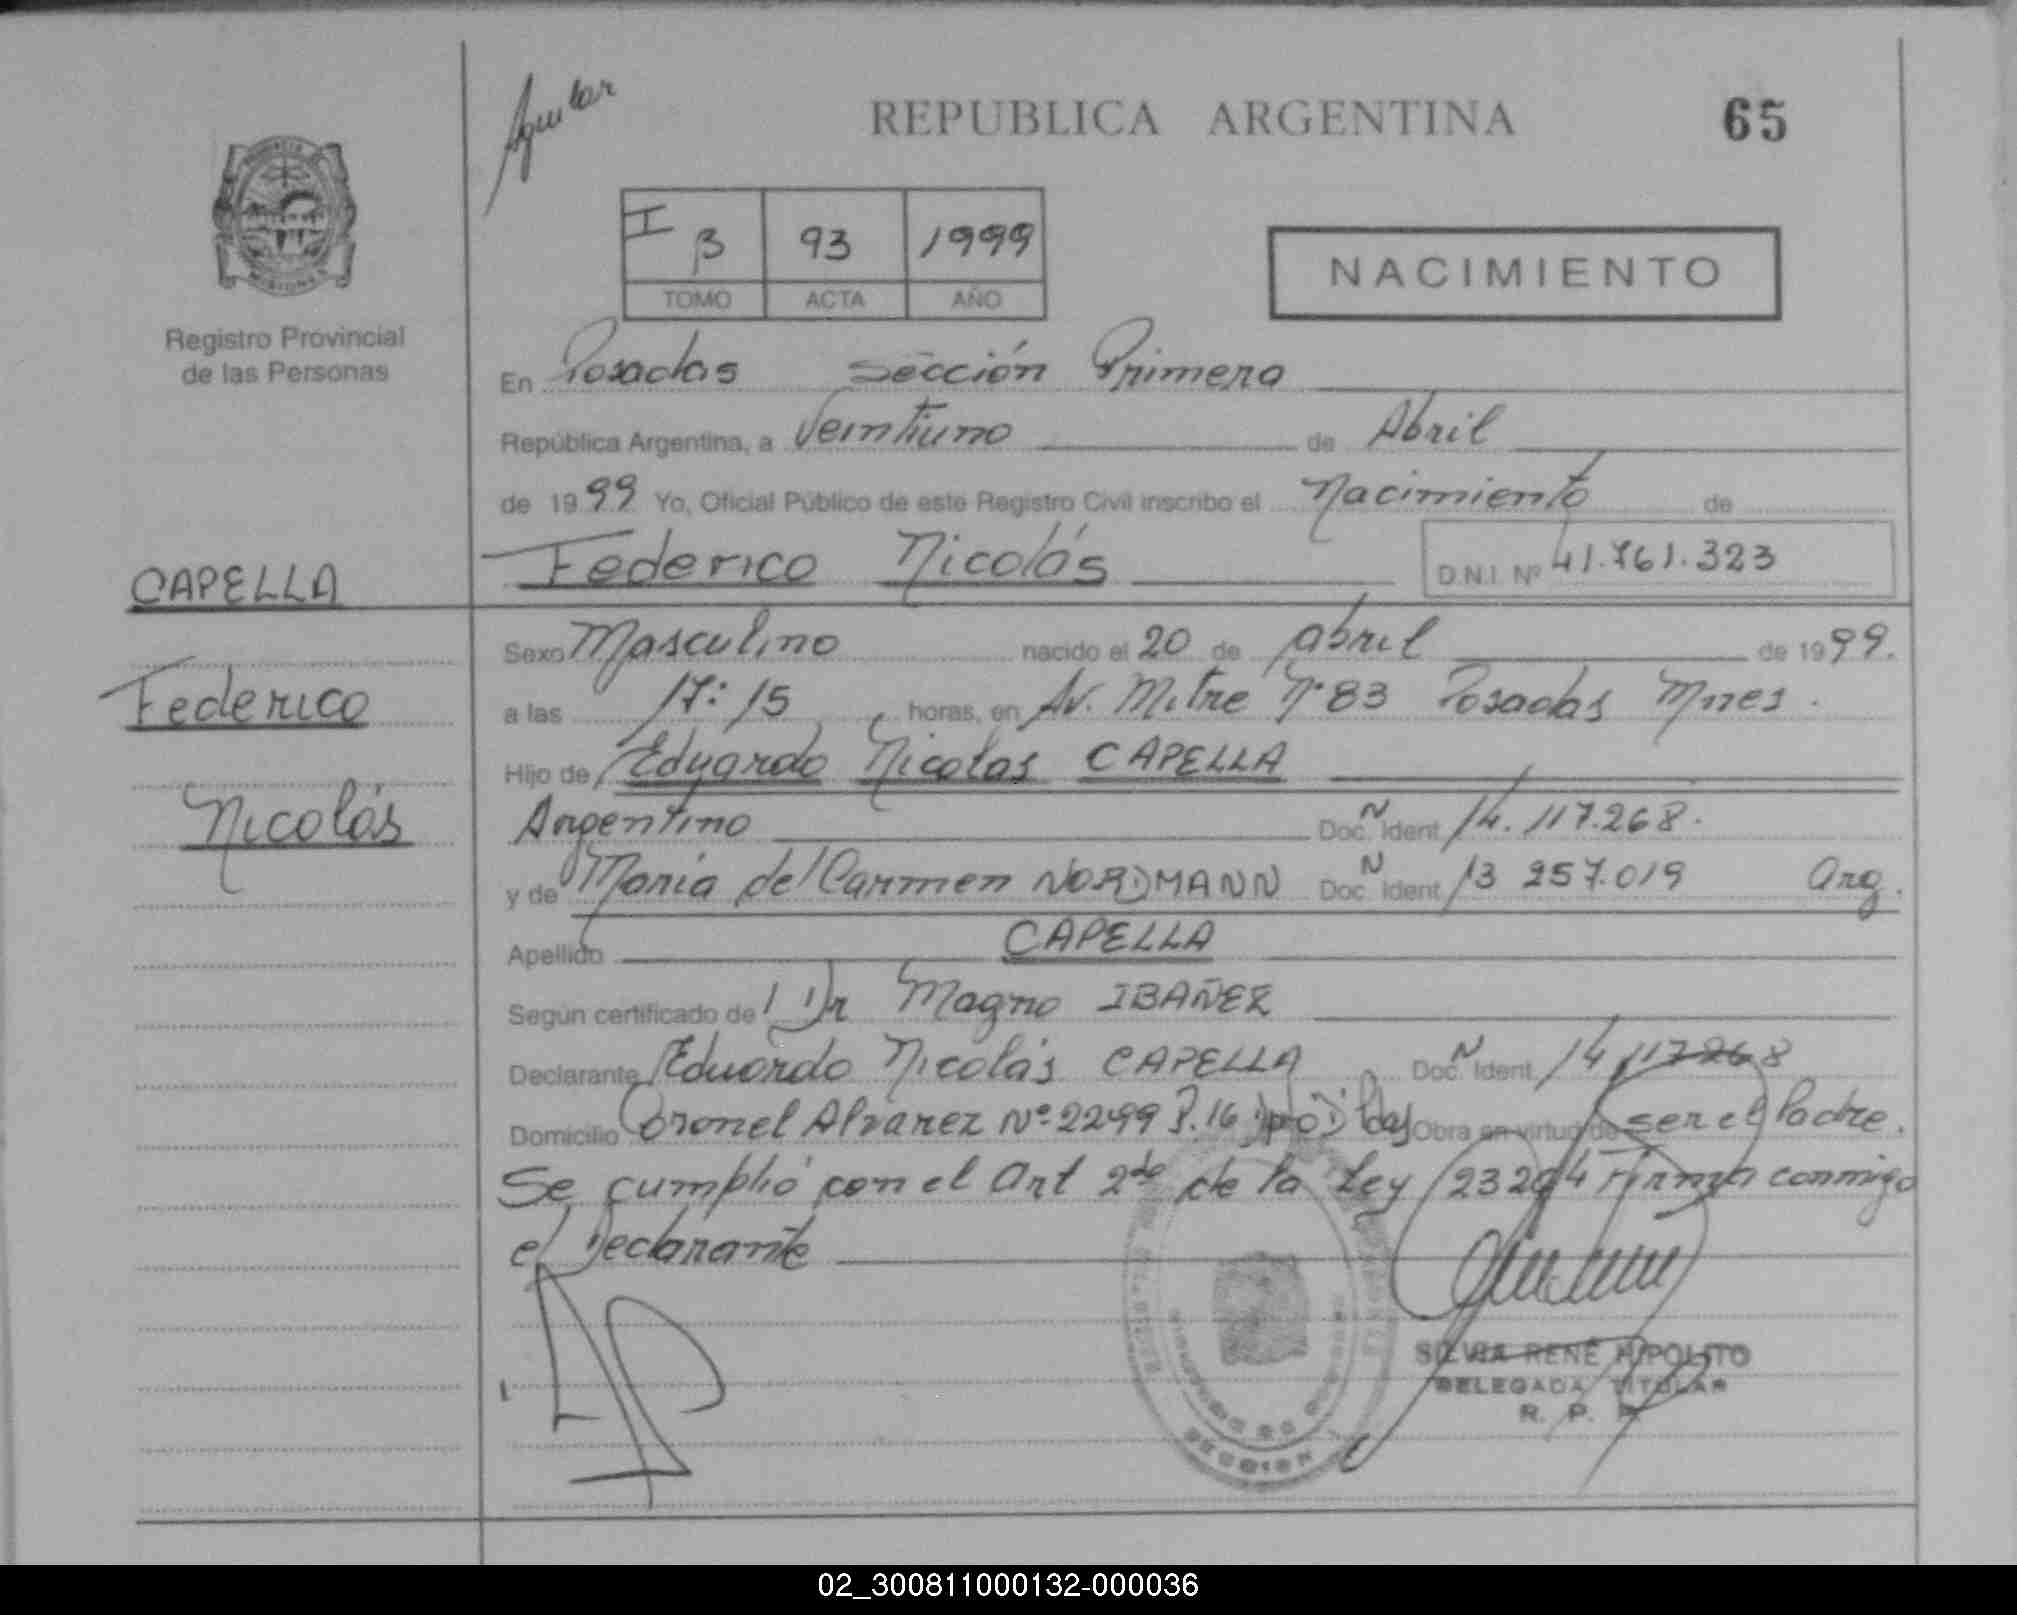 Aguilar
REPUBLICA ARGENTINA
65
I B 93 1999
TOMO ACTA AÑO
NACIMIENTO
Registro Provincial
de las Personas
En Posadas Sección Primera
República Argentina, a Veintiuno de Abril
de 1999 Yo, Oficial Público de este Registro Civil inscribo el Nacimiento de
Federico Nicolás
D.N.I. Nº 41.761.323
CAPELLA
Federico
Nicolás
Sexo Masculino nacido el 20 de abril de 1999.
a las 17:15 horas, en Av. Mitre Nº 83 Posadas Mnes.
Hijo de Eduardo Nicolas CAPELLA
Argentino Doc. N Ident 14.117.268.
y de María del Carmen NORDMANN Doc. N Ident 13 257.019 Arg.
Apellido CAPELLA
Según certificado de Dr Magno IBAÑEZ
Declarante Eduardo Nicolás CAPELLA Doc. N Ident. 14 117268
Domicilio Coronel Alvarez Nº 2299 P. 16 Dpto D Pdas Obra en virtud de ser el Padre.
Se cumplió con el Art 2do de la Ley 23264 Firma conmigo
el Declarante
SILVIA RENÉ HIPOLITO
DELEGADA TITULAR
R. P. P.
02_300811000132-000036